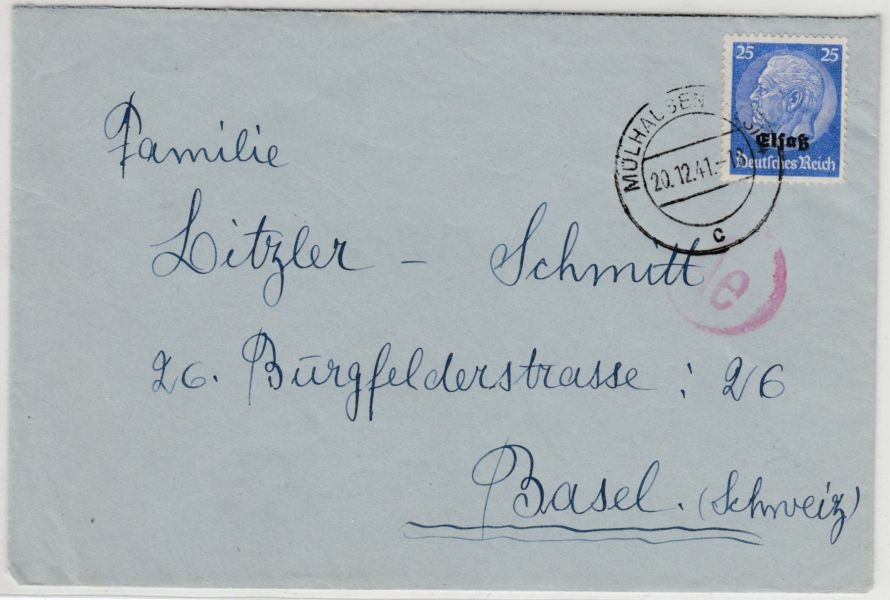 25 25
Elsaß
Deutsches Reich
MÜLHAUSEN
20.12.41.
c
Ae
Familie
Litzler - Schmitt
26. Burgfelderstrasse : 26
Basel. (Schweiz)